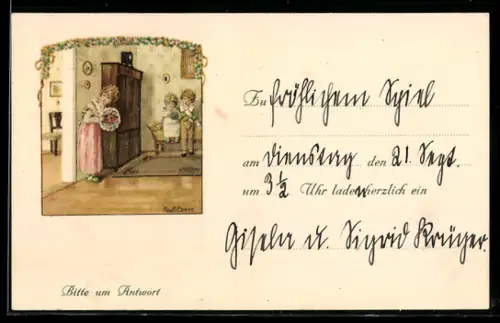 Zu fröhlichem Spiel
am Dienstag den 21. Sept.
um 3½ Uhr laden herzlich ein
Gisela u. Sigrid Krüger.
Bitte um Antwort